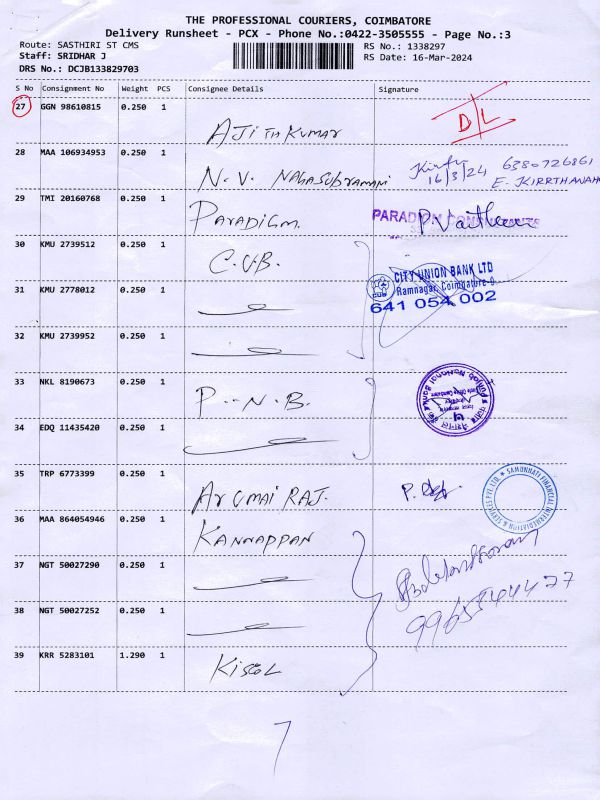 THE PROFESSIONAL COURIERS, COIMBATORE
Delivery Runsheet - PCX - Phone No.:0422-3505555 - Page No.:3
Route: SASTHIRI ST CMS
RS No.: 1338297
Staff: SRIDHAR J
RS Date: 16-Mar-2024
DRS No.: DCJB133829703
S No Consignment No Weight PCS Consignee Details Signature
27 GGN 98610815 0.250 1 AJITH KUMAR D/L
28 MAA 106934953 0.250 1 N.V. NAGASUBRAMANI 16/3/24 6380726861
E. KIRRTHANAH
29 TMI 20160768 0.250 1 PARADIGM. PARADIGM CONSULTANTS
30 KMU 2739512 0.250 1 C.U.B. CITY UNION BANK LTD
Ramnagar, Coimbatore-9.
641 054 002
31 KMU 2778012 0.250 1
32 KMU 2739952 0.250 1
33 NKL 8190673 0.250 1 P.N.B. Punjab National Bank
34 EDQ 11435420 0.250 1
35 TRP 6773399 0.250 1 ARUMAI RAJ. SAMUNNATI FINANCIAL INTERMEDIATION & SERVICES PVT. LTD.
36 MAA 864054946 0.250 1 KANNAPPAN
37 NGT 50027290 0.250 1
38 NGT 50027252 0.250 1
39 KRR 5283101 1.290 1
7